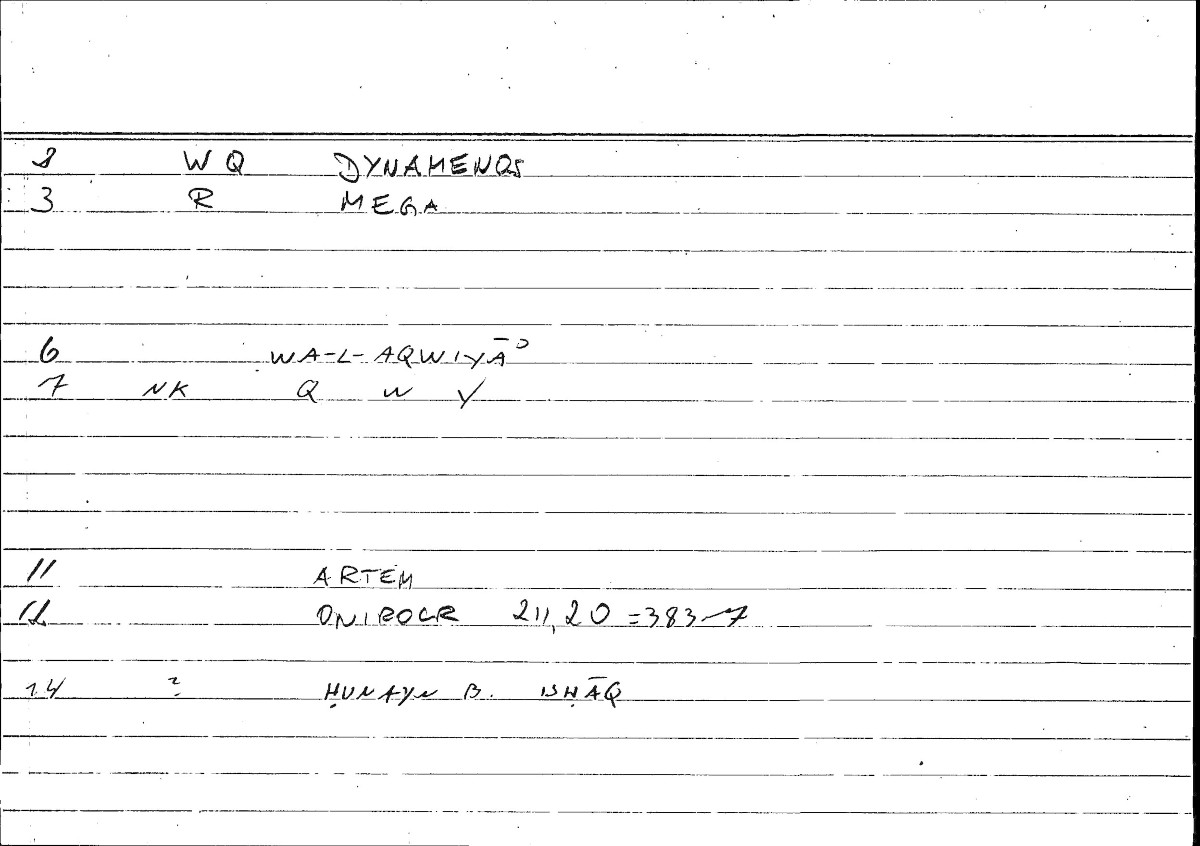 8 WQ DYNAMENQS
3 R MEGA
6 WA-L-AQWIYĀʾ
7 NK Q W Y
11 ARTEM
12 ONIROCR 211,20 =383-7
14 ? ḤUNAYN B. ISḤĀQ